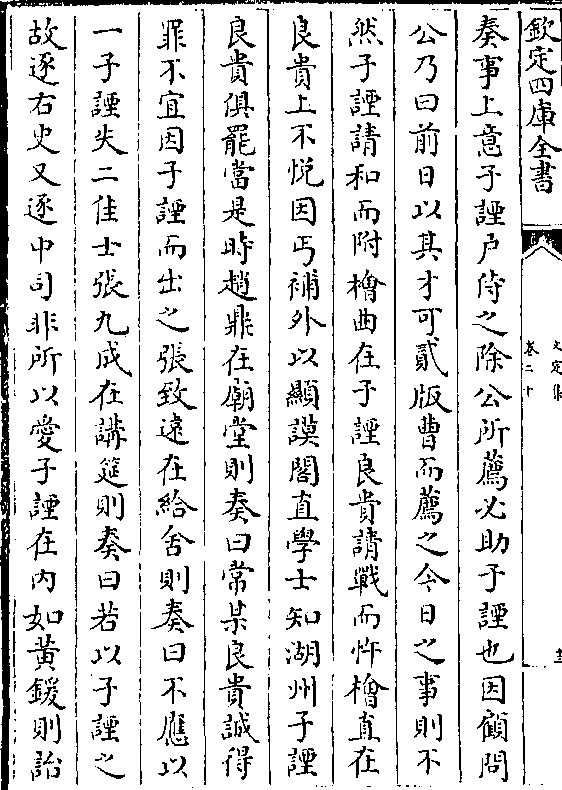 欽定四庫全書
文定集
卷二十
奏事上意子諲户侍之除公所薦必助子諲也因顧問
公乃曰前日以其才可貳版曹而薦之今日之事則不
然子諲請和而附檜曲在子諲良貴請戰而忤檜直在
良貴上不悦因丐補外以顯謨閣直學士知湖州子諲
良貴俱罷當是時趙鼎在廟堂則奏曰常某良貴誠得
罪不宜因子諲而出之張致遠在給舍則奏曰不應以
一子諲失二佳士張九成在講筵則奏曰若以子諲之
故逐右史又逐中司非所以愛子諲在内如黄鍰則詒